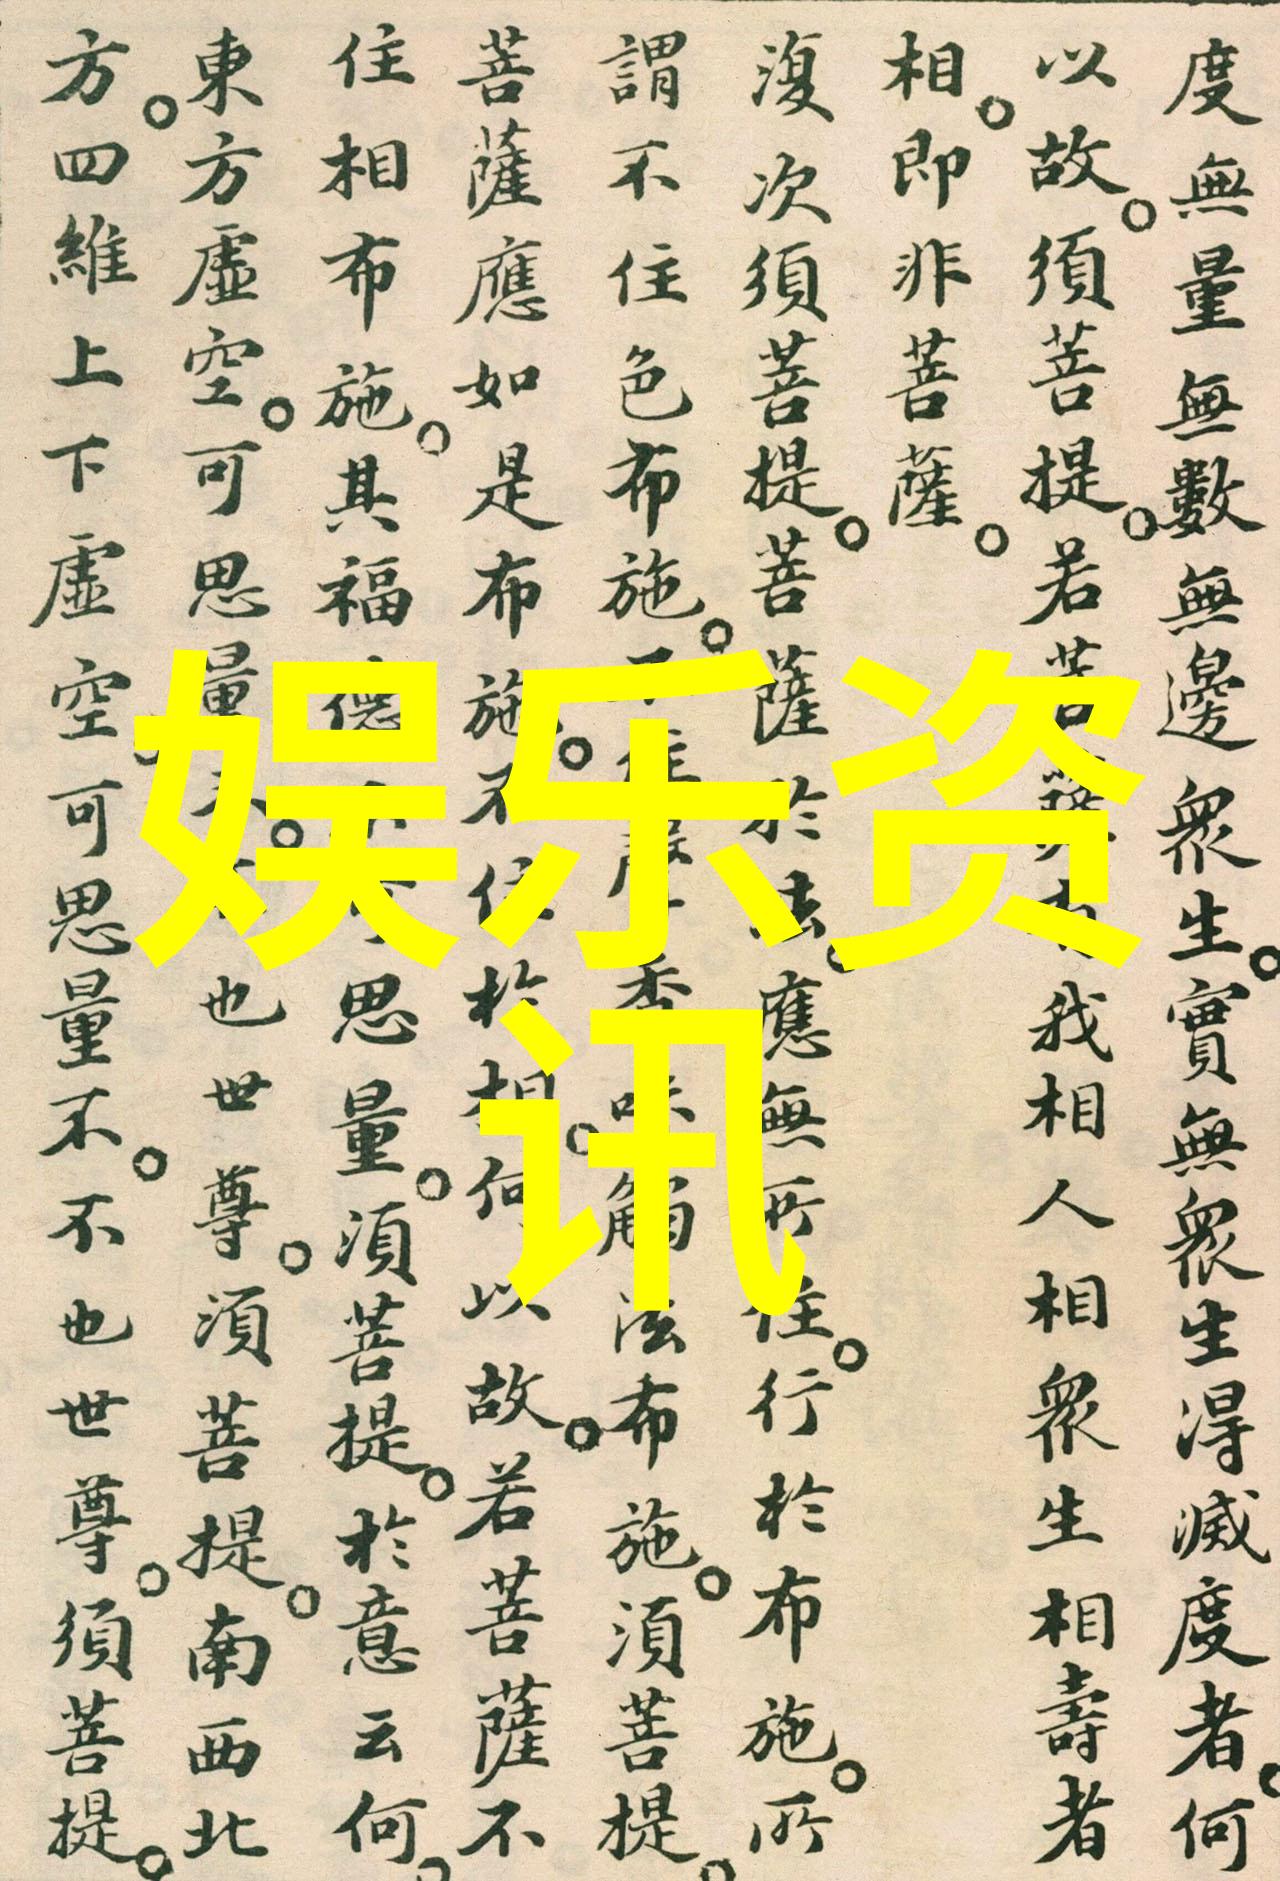 度無量無數無邊眾生。實無眾生得滅度者。何
以故。須菩提。若菩薩有我相人相眾生相壽者
相。即非菩薩。
復次須菩提。菩薩於法。應無所住。行於布施。所
謂不住色布施。不住聲香味觸法布施。須菩提。
菩薩應如是布施。不住於相。何以故。若菩薩不
住相布施。其福德不可思量。須菩提。於意云何。
東方虛空。可思量不。不也世尊。須菩提。南西北
方。四維上下虛空。可思量不。不也世尊。須菩提。
娱乐资
讯